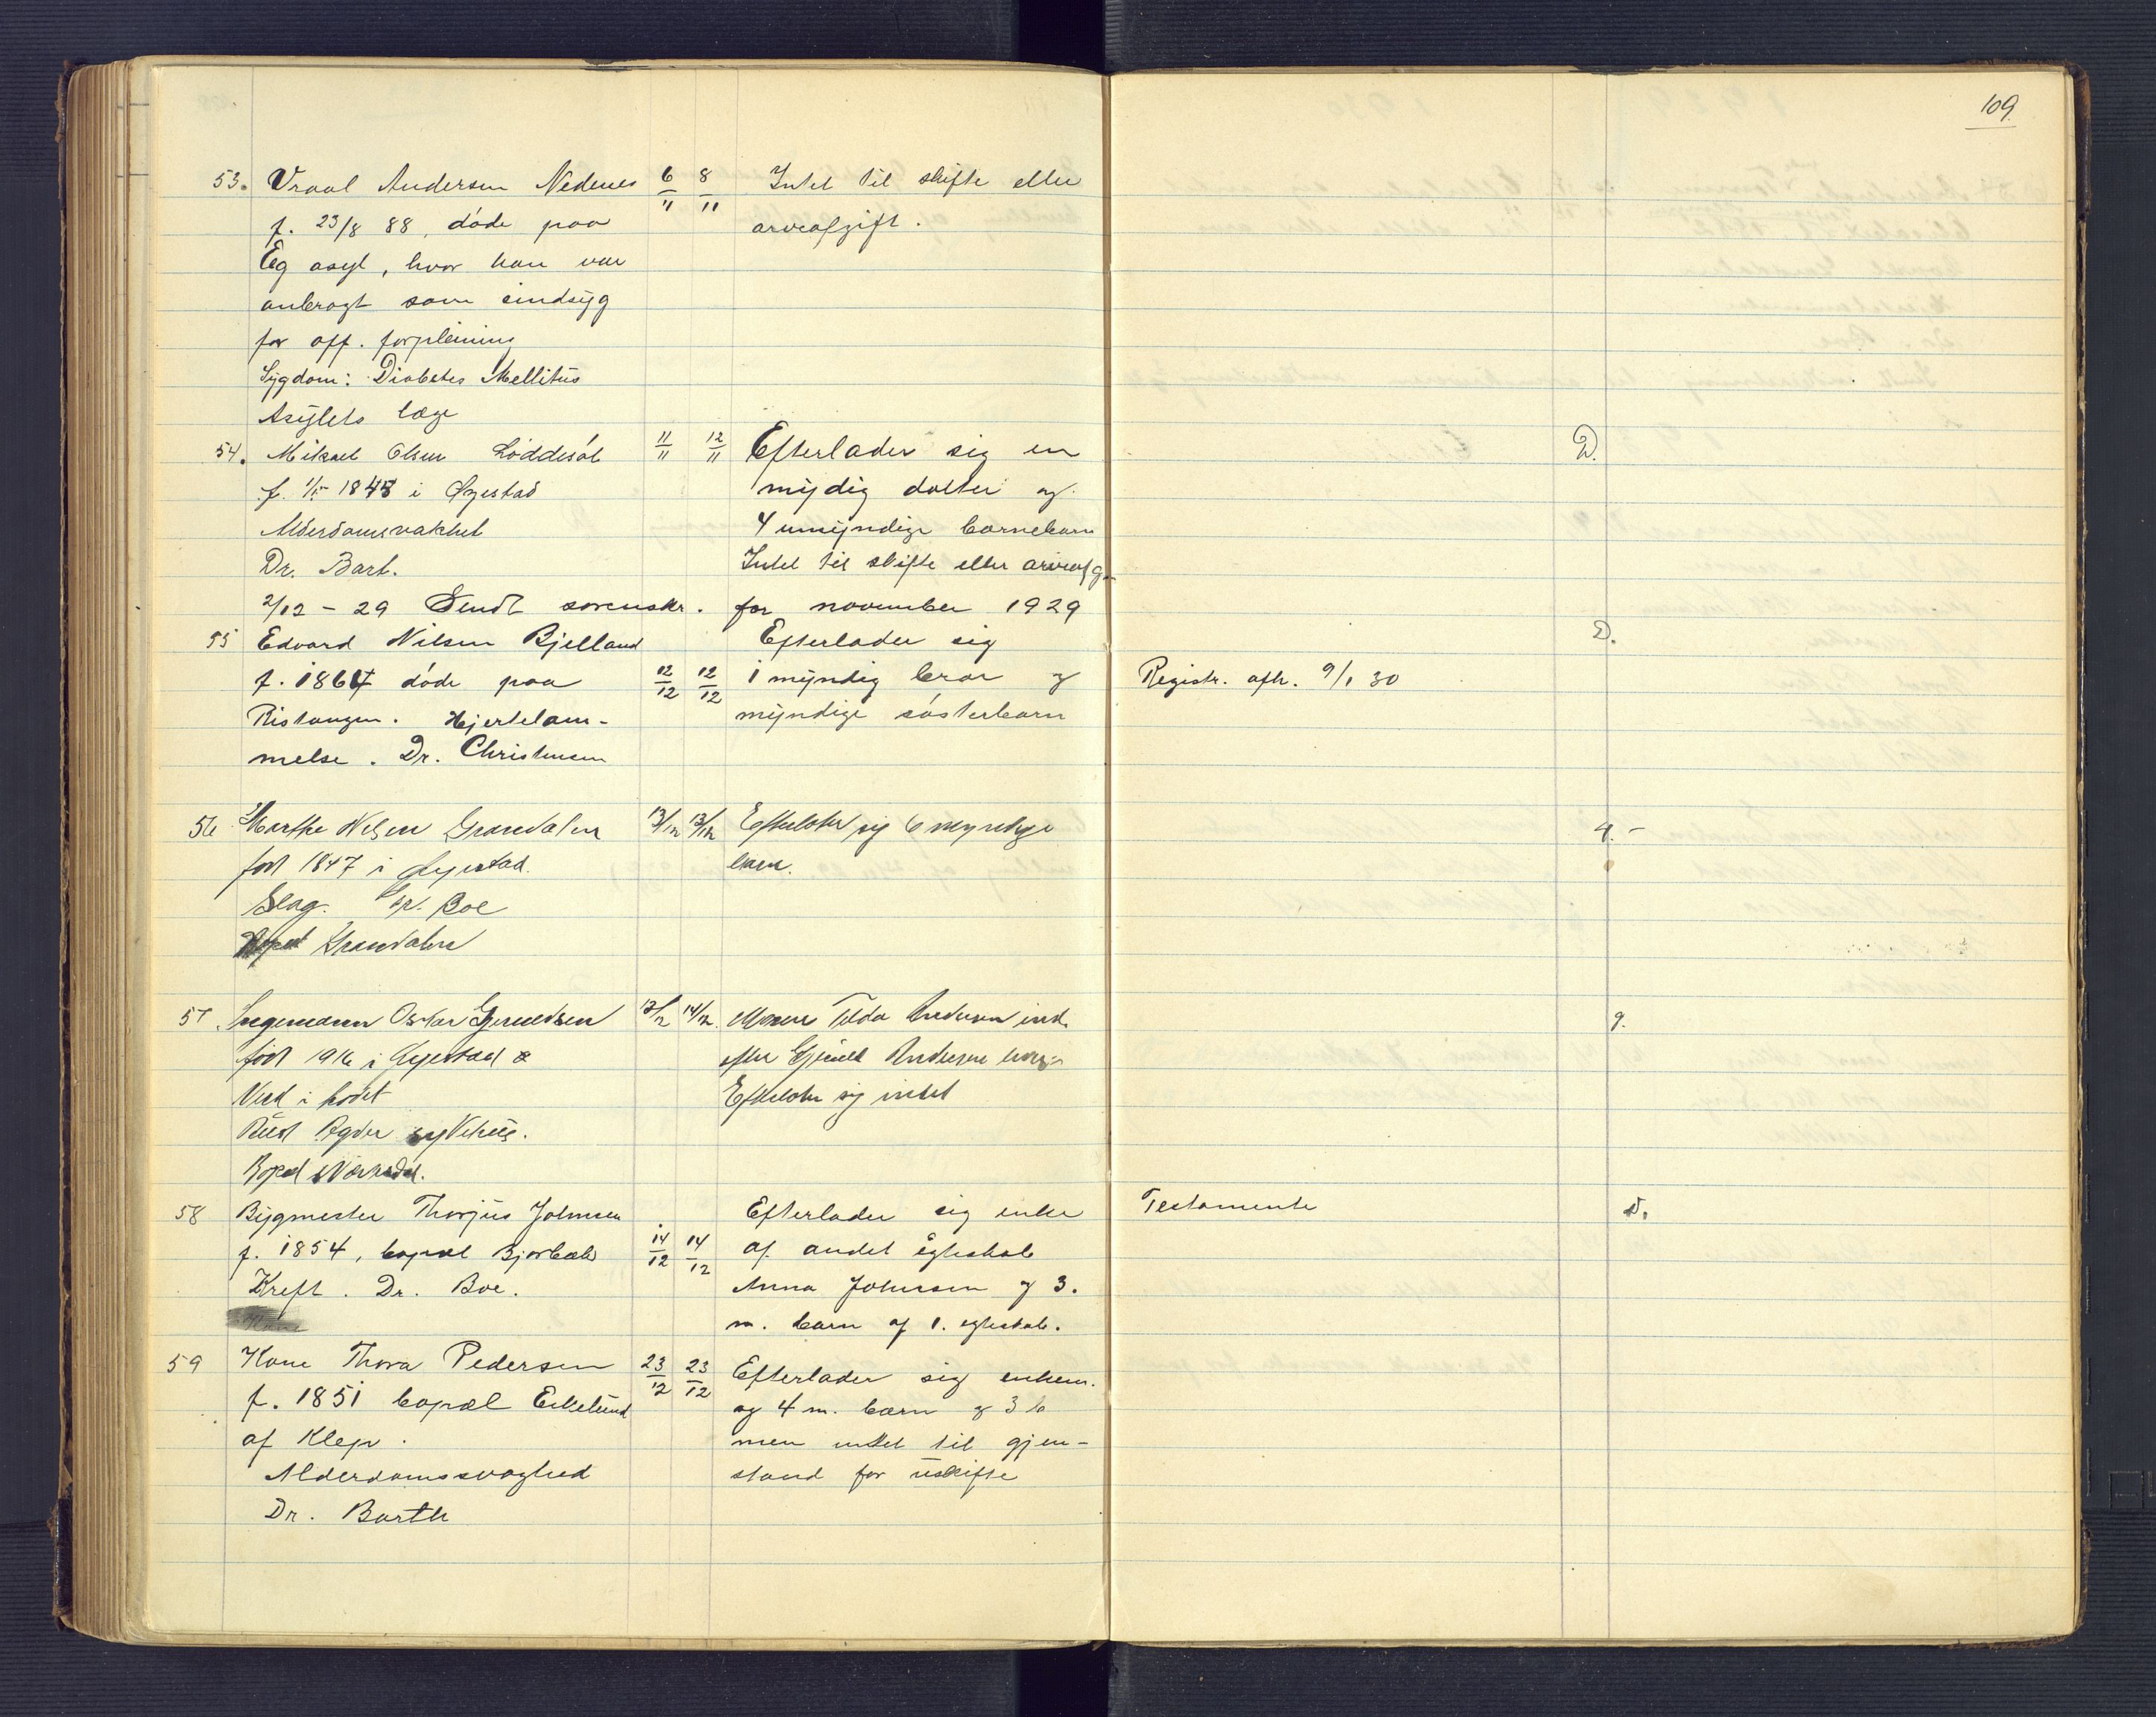 109.
53. Vraal Andersen Nedenes 6/11 8/11 Intet til skifte eller
f. 23/8 88, døde paa arveafgift.
Eg asyl, hvor han var
anbragt som sindsyg
for off. forpleining
Sygdom: Diabetes Mellitus
Asylets læge
54. Mikael Olsen Løddesøl 11/11 12/11 Efterlader sig en D.
f. 1/5 1848 i Øyestad myndig datter og
Alderdomsvakhet 4 umyndige barnebarn
Dr. Bart. Intet til skifte eller arveafg.
2/12 - 29 Sendt sorenskr. for november 1929
55 Edvard Nilsen Bjelland Efterlader sig D.
f. 1867 døde paa 12/12 12/12 1 myndig bror og Registr. afh. 9/1 30
Ristangen. Hjertelam- myndige søsterbarn
melse. Dr. Christensen
56 Marthe Nilsen Grandalen 13/12 13/12 Efterlater sig 6 myndige
født 1847 i Øyestad. barn.
Slag. Dr. Boe
Bopæl Grandalen
57. Ingemann Oskar 13/12 14/12. Moren Tilda Andersen
født 1916 i Øyestad
Vert i hodet Efterlater sig intet
Aust Agder sykehus.
Bopæl
58 Bygmester Thorjus Johnsen Efterlader sig enke Testamente D.
f. 1854, bopæl Bjorbæk 14/12 14/12 af andet egteskab
Kreft. Dr. Boe. Anna Johnsen og 3.
Kone m. barn af 1. egteskab.
59 Kone Thora Pedersen 23/12 23/12 Efterlader sig enkem.
f. 1851 bopæl Eikelund og 4 m. barn og 3
af Klep. men intet til gjen-
Alderdomssvaghed stand for uskifte
Dr. Barth